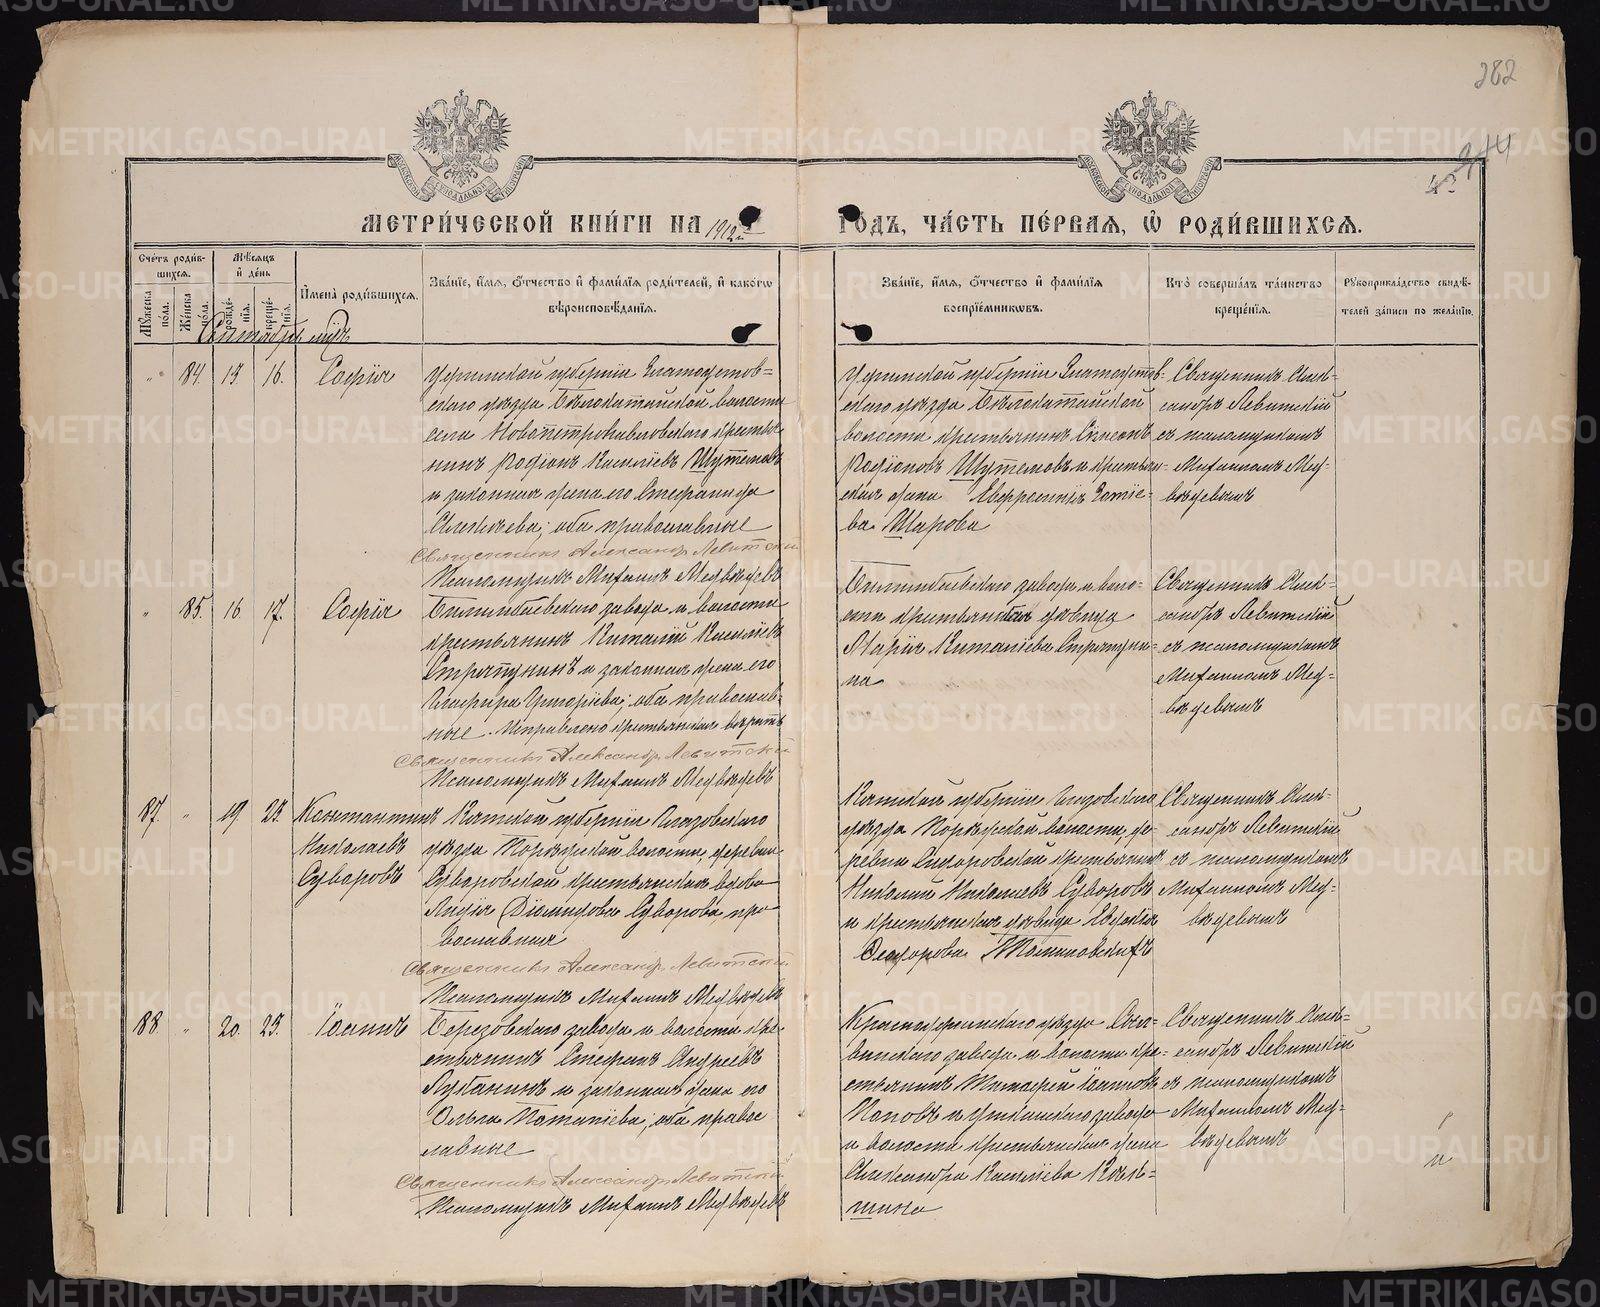 282
244
43
МЕТРИ́ЧЕСКОЙ КНИ́ГИ НА 1912й ГО́ДЪ, ЧА́СТЬ ПЕ́РВАЯ, Ѿ РОДИ́ВШИХСЯ.
Сче́тъ роди́вшихся.
Му́жеска по́ла.
Же́нска по́ла.
Мѣ́сяцъ и҆ де́нь
рожде́нїѧ.
креще́нїѧ.
И҆мена̀ роди́вшихсѧ.
Зва́нїе, и҆́мѧ, ѻ҆́тчество и҆ фами́лїѧ роди́телей, и҆ како́гѡ
вѣроисповѣ́данїѧ.
Зва́нїе, и҆́мѧ, ѻ҆́тчество и҆ фами́лїѧ
воспрїе́мникѡвъ.
Кто̀ соверша́лъ та́инство
креще́нїѧ.
Рꙋкоприкла́дство свидѣ́-
телей за́писи по жела́нїю.
Сентябрь мцъ
84. 15. 16. Софія
Уфимской губерніи Златоустов-
скаго уѣзда Бѣлокатайской волости
села Новопетропавловскаго крестья-
нинъ Родіонъ Василіевъ Шутемовъ
и законная жена его Стефанида
Алексѣева; оба православные
Священникъ Александръ Левитскій
Псаломщикъ Михаилъ Медвѣдевъ
Уфимской губерніи Златоустов-
скаго уѣзда Бѣлокатайской
волости крестьянинъ Симеонъ
Родіоновъ Шутемовъ и крестьян-
ская жена Евфросинія
Шарова
Священникъ Алек-
сандръ Левитскій
съ псаломщикомъ
Михаиломъ Мед-
вѣдевымъ
85. 16. 17. Софія
Билимбаевскаго завода и волости
крестьянинъ Виталій Василіевъ
Стряпунинъ и законная жена его
Глафира Григоріева; оба православ-
ные. Исправлено крестьянская вѣрить
Священникъ Александръ Левитскій
Псаломщикъ Михаилъ Медвѣдевъ
Билимбаевскаго завода и воло-
сти крестьянская дѣвица
Марія Виталіева Стряпуни-
на
Священникъ Алек-
сандръ Левитскій
съ псаломщикомъ
Михаиломъ Мед-
вѣдевымъ
87. 19 23. Константинъ
Николаевъ
Суворовъ
Вятской губерніи Глазовскаго
уѣзда волости, деревни
Суворовской крестьянская вдова
Лидія Діомидова Суворова, пра
вославная
Священникъ Александръ Левитскій
Псаломщикъ Михаилъ Медвѣдевъ
Вятской губерніи Глазовскаго
уѣзда волости, де-
ревни крестьянинъ
Николай Николаевъ Суворовъ
и крестьянская дѣвица Евдокія
Ѳеодорова
Священникъ Алек-
сандръ Левитскій
съ псаломщикомъ
Михаиломъ Мед-
вѣдевымъ
88 20. 23. Іоаннъ
Березовскаго завода и волости кре-
стьянинъ Стефанъ Андреевъ
Лубанинъ и законная жена его
Ольга Потапіева; оба право
славные
Священникъ Александръ Левитскій
Псаломщикъ Михаилъ Медвѣдевъ
Красноуфимскаго уѣзда
завода и волости кре-
стьянинъ Тимофей Іоанновъ
Поповъ и Уткинскаго завода
и волости крестьянская жена
Александра Василіева
шина
Священникъ Алек-
сандръ Левитскій
съ псаломщикомъ
Михаиломъ Мед-
вѣдевымъ
METRIKI.GASO-URAL.RU